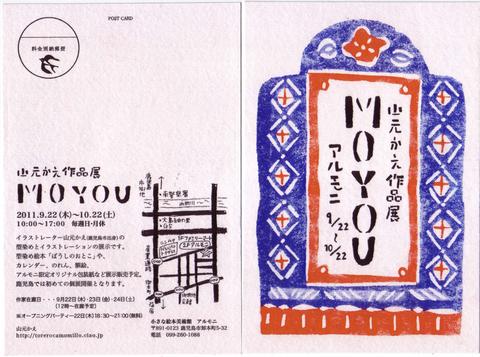 POST CARD
料金別納郵便
山元かえ作品展
MOYOU
2011.9.22(木)〜10.22(土)
10:00〜17:00 毎週日・月休
イラストレーター山元かえ(鹿児島市出身)の
型染めとイラストレーションの展示です。
型染め絵本「ぼうしのおとこ」や、
カレンダー、のれん、額絵、
アルモニ限定オリジナル包装紙など展示販売予定。
鹿児島では初めての個展開催となります。
作家在廊日・・・9月22日(木)・23日(金)・24日(土)
(12時〜在廊予定)
※オープニングパーティー22日(木)18:30〜21:00(無料)
山元かえ
http://torerocamomillo.ciao.jp
小さな絵本美術館 アルモニ
〒891-0123 鹿児島市卸本町5-32
電話 099-260-1088
山元かえ作品展
MOYOU
アルモニ
9/22〜10/22